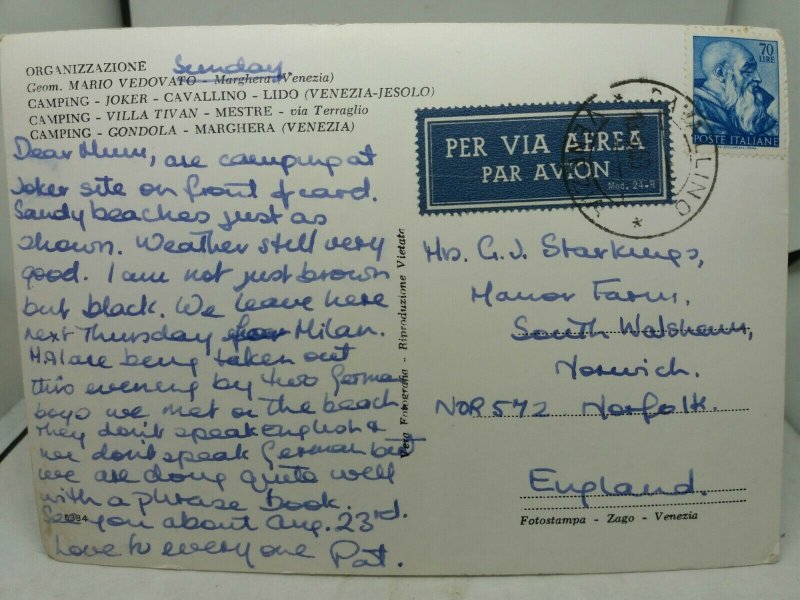 ORGANIZZAZIONE Sunday
Geom. MARIO VEDOVATO - Marghera (Venezia)
CAMPING - JOKER - CAVALLINO - LIDO (VENEZIA-JESOLO)
CAMPING - VILLA TIVAN - MESTRE - via Terraglio
CAMPING - GONDOLA - MARGHERA (VENEZIA)
Dear Mum, are camping at
Joker site on front of card.
Sandy beaches just as
shown. Weather still very
good. I am not just brown
but black. We leave here
next Thursday for Milan.
M.A. are being taken out
this evening by two German
boys we met on the beach
They don't speak English &
we don't speak German but
we are doing quite well
with a phrase book.
See you about Aug. 23rd.
Love to everyone Pat.
5394
Vera Fotografia - Riproduzione Vietata
PER VIA AEREA
PAR AVION
Mod. 24-R
70
LIRE
POSTE ITALIANE
CAVALLINO
VENEZIA
Mrs. G. J. Starkings,
Manor Farm,
South Walsham,
Norwich.
NOR 57Z Norfolk.
England.
Fotostampa - Zago - Venezia